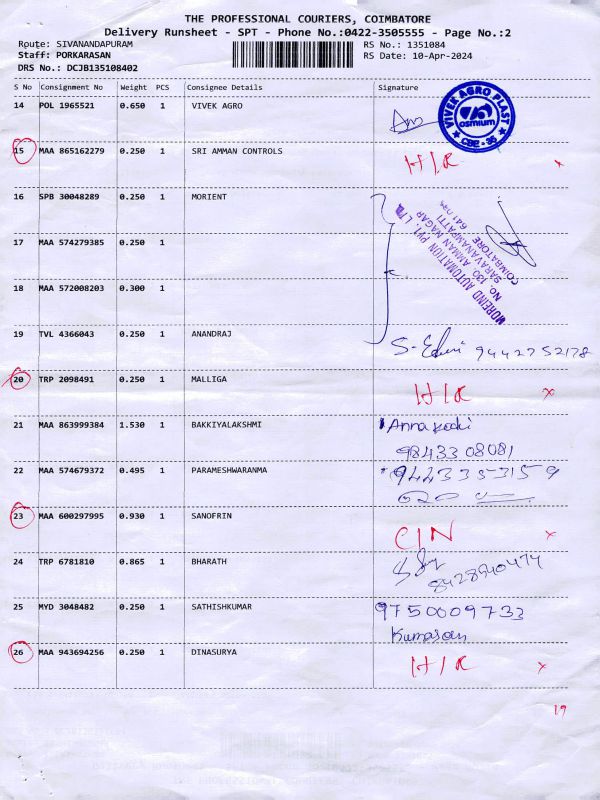 THE PROFESSIONAL COURIERS, COIMBATORE
Delivery Runsheet - SPT - Phone No.:0422-3505555 - Page No.:2
Route: SIVANANDAPURAM RS No.: 1351084
Staff: PORKARASAN RS Date: 10-Apr-2024
DRS No.: DCJB135108402
S No Consignment No Weight PCS Consignee Details Signature
14 POL 1965521 0.650 1 VIVEK AGRO
VIVEK AGRO PLAST
osmium
CBE - 35
15 MAA 865162279 0.250 1 SRI AMMAN CONTROLS H/K x
16 SPB 30048289 0.250 1 MORIENT
MOREIND AUTOMATION PVT. LTD
No. 130, AMMAN NAGAR
SARAVANAMPATTI
COIMBATORE - 641 035
17 MAA 574279385 0.250 1
18 MAA 572008203 0.300 1
19 TVL 4366043 0.250 1 ANANDRAJ 9442752178
20 TRP 2098491 0.250 1 MALLIGA H/K x
21 MAA 863999384 1.530 1 BAKKIYALAKSHMI Annakodi
98433 08081
22 MAA 574679372 0.495 1 PARAMESHWARANMA 9443353159
23 MAA 600297995 0.930 1 SANOFRIN C/N x
24 TRP 6781810 0.865 1 BHARATH 8428940474
25 MYD 3048482 0.250 1 SATHISHKUMAR 9750009733
Kumaran
26 MAA 943694256 0.250 1 DINASURYA H/K x
19